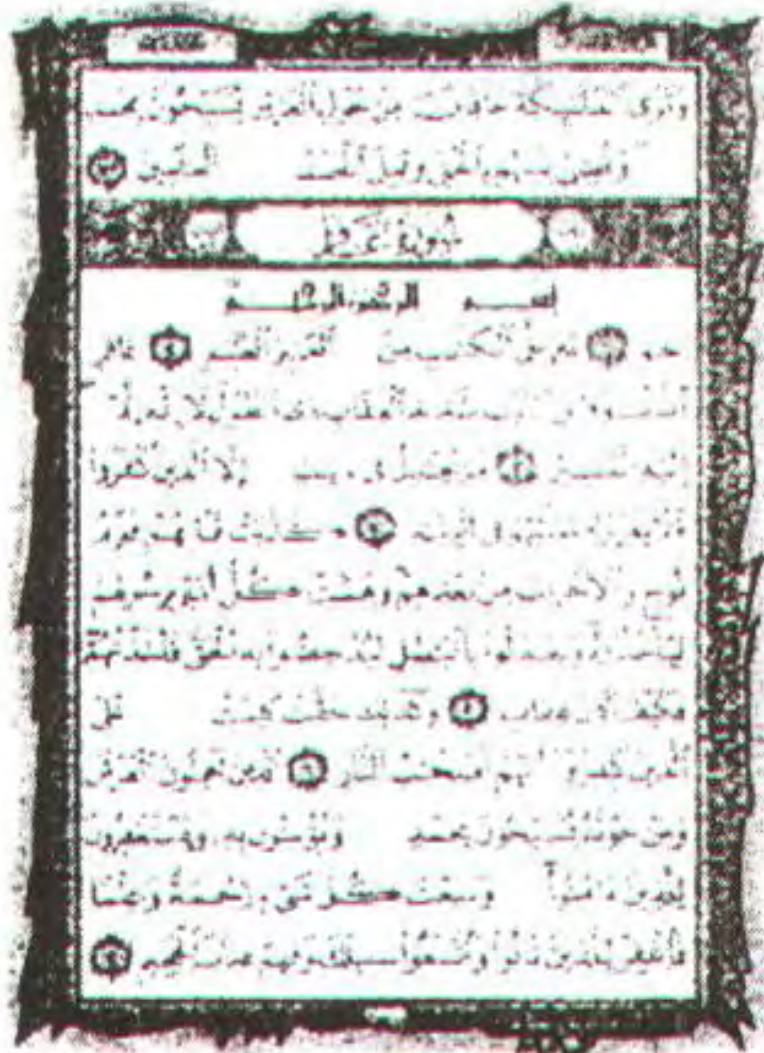 وترى الملئكة حافين من حول العرش يسبحون بحمد
وقضى بينهم بالحق وقيل الحمد العلمين
سورة غافر
بسم الرحمن الرحيم
حم تنزيل الكتب من العزيز العليم غافر
العقاب ذى الطول لا إله
إليه المصير ما يجدل فى ءايت إلا الذين كفروا
فلا يغررك تقلبهم فى البلد كذبت قبلهم قوم
نوح والأحزاب من بعدهم وهمت كل أمة برسولهم
ليأخذوه وجدلوا بالبطل ليدحضوا به الحق فأخذتهم
فكيف كان عقاب وكذلك حقت كلمت على
الذين كفروا أنهم أصحب النار الذين يحملون العرش
ومن حوله يسبحون بحمد ويؤمنون به ويستغفرون
للذين ءامنوا وسعت كل شىء رحمة وعلما
فاغفر للذين تابوا واتبعوا سبيلك وقهم عذاب الجحيم